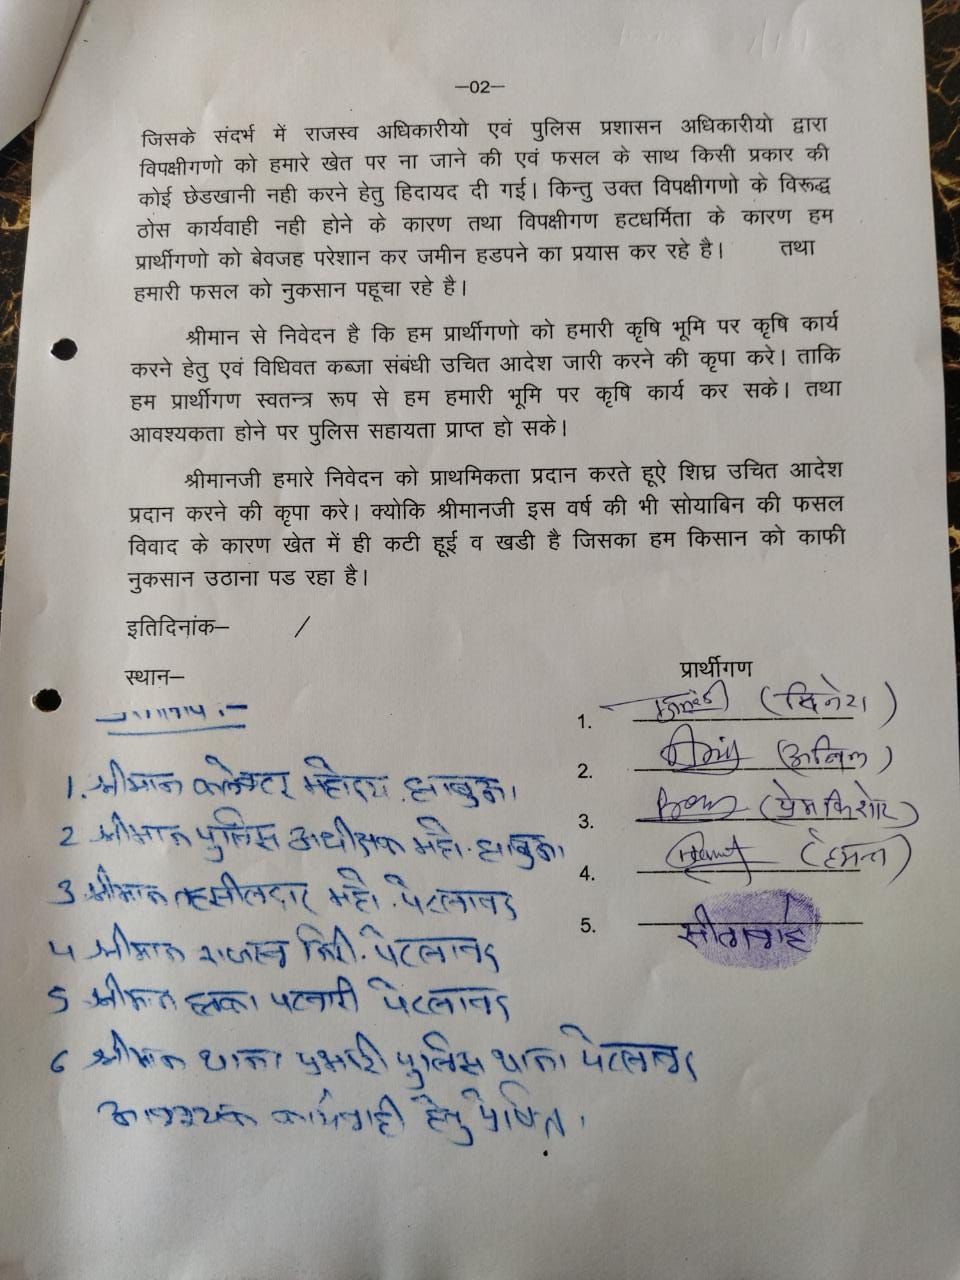 —02—
जिसके संदर्भ में राजस्व अधिकारीयो एवं पुलिस प्रशासन अधिकारीयो द्वारा
विपक्षीगणो को हमारे खेत पर ना जाने की एवं फसल के साथ किसी प्रकार की
कोई छेडखानी नही करने हेतु हिदायद दी गई। किन्तु उक्त विपक्षीगणो के विरूद्ध
ठोस कार्यवाही नही होने के कारण तथा विपक्षीगण हटधर्मिता के कारण हम
प्रार्थीगणो को बेवजह परेशान कर जमीन हडपने का प्रयास कर रहे है। तथा
हमारी फसल को नुकसान पहूचा रहे है।
श्रीमान से निवेदन है कि हम प्रार्थीगणो को हमारी कृषि भूमि पर कृषि कार्य
करने हेतु एवं विधिवत कब्जा संबंधी उचित आदेश जारी करने की कृपा करे। ताकि
हम प्रार्थीगण स्वतन्त्र रूप से हम हमारी भूमि पर कृषि कार्य कर सके। तथा
आवश्यकता होने पर पुलिस सहायता प्राप्त हो सके।
श्रीमानजी हमारे निवेदन को प्राथमिकता प्रदान करते हूऐ शिघ्र उचित आदेश
प्रदान करने की कृपा करे। क्योकि श्रीमानजी इस वर्ष की भी सोयाबिन की फसल
विवाद के कारण खेत में ही कटी हूई व खडी है जिसका हम किसान को काफी
नुकसान उठाना पड रहा है।
इतिदिनांक— /
स्थान—
प्रार्थीगण
1. (दिनेश)
2. (अनिल)
3. (प्रेमकिशोर)
4. (हेमन्त)
5. सीताबाई
1. श्रीमान कलेक्टर महोदय झाबुआ।
2 श्रीमान पुलिस अधीक्षक महो. झाबुआ
3 श्रीमान तहसीलदार महो. पेटलावद
4 श्रीमान राजस्व निरी. पेटलावद
5 श्रीमान हल्का पटवारी पेटलावद
6 श्रीमान थाना प्रभारी पुलिस थाना पेटलावद
आवश्यक कार्यवाही हेतु प्रेषित।